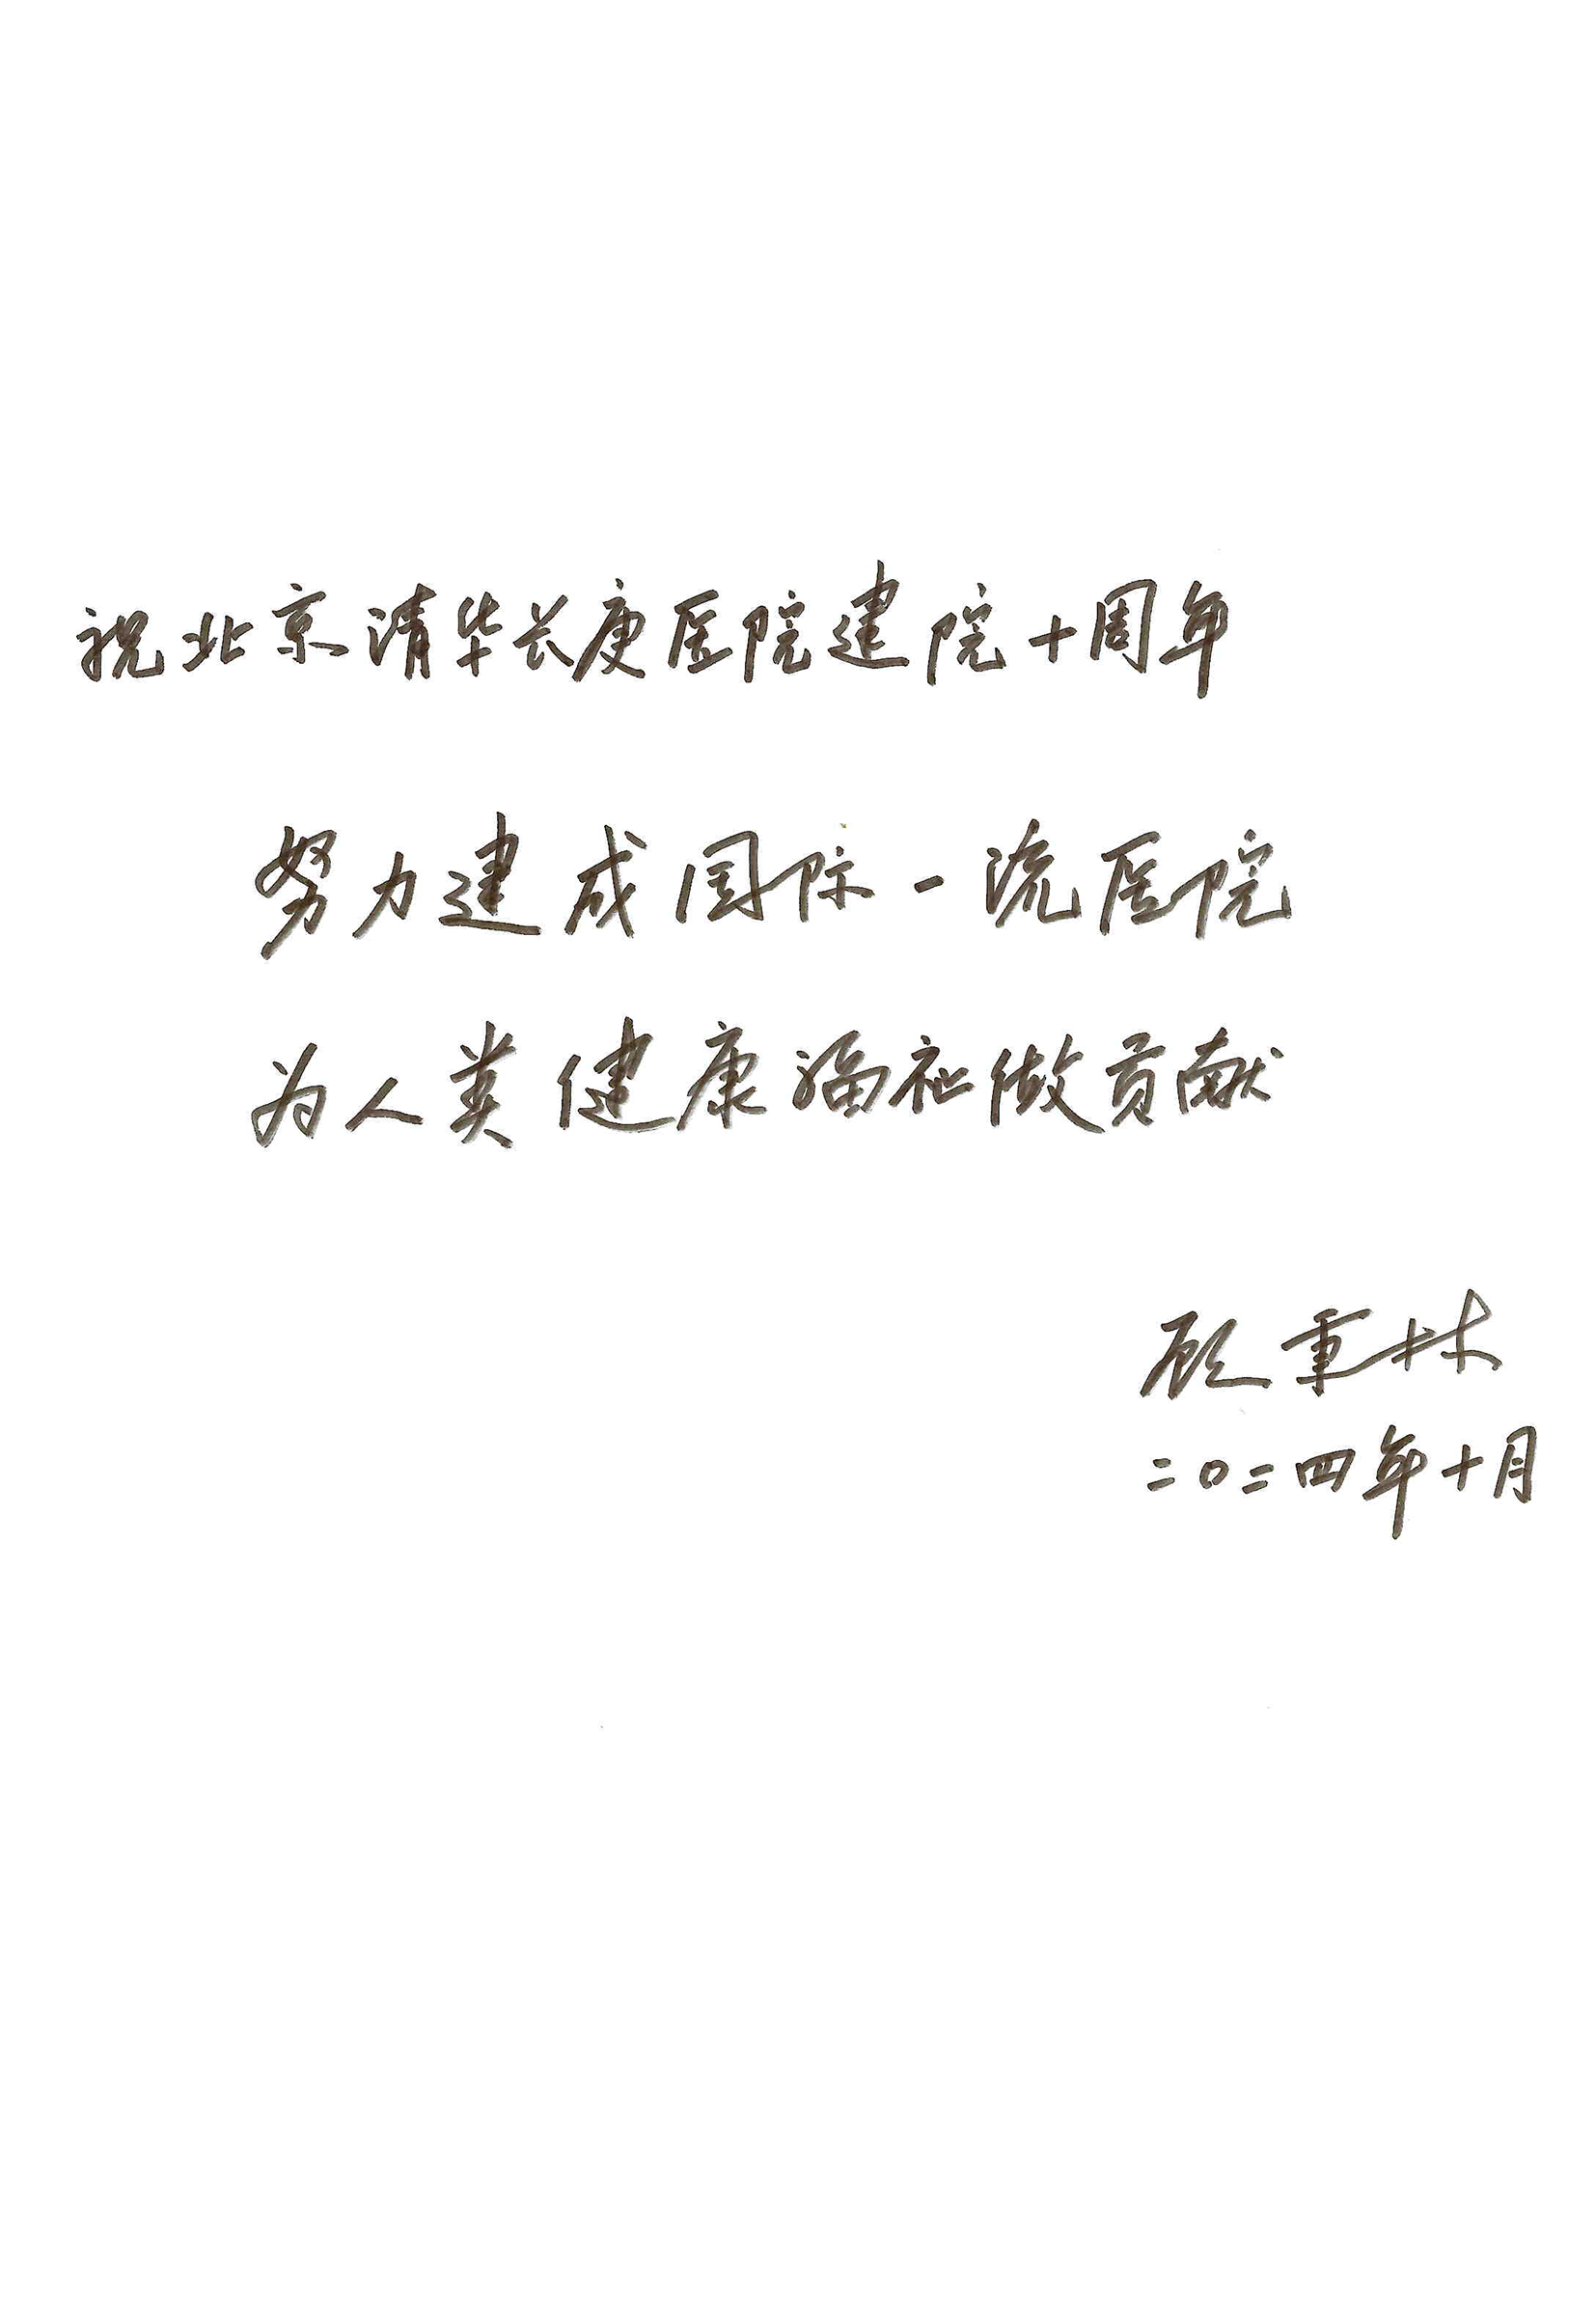 祝北京清华长庚医院建院十周年
努力建成国际一流医院
为人类健康福祉做贡献
顾秉林
二〇二四年十月